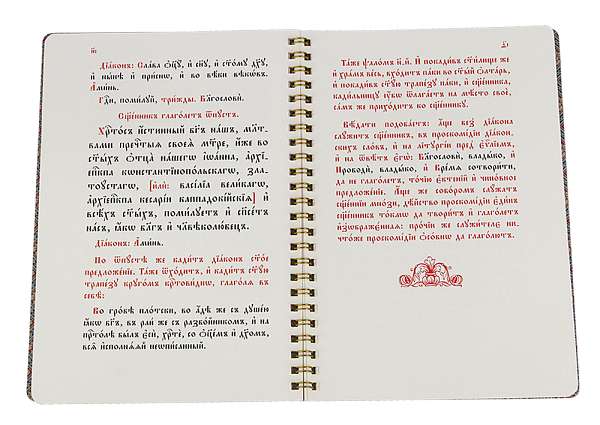 Дїа́конъ: Сла́ва ѻ҆ц҃ꙋ̀, и҆ сн҃ꙋ, и҆ ст҃о́мꙋ дх҃ꙋ,
и҆ ны́нѣ и҆ при́снѡ, и҆ во вѣ́ки вѣкѡ́въ.
А҆ми́нь.
Гдⷭ҇и, поми́лꙋй, три́жды. Бл҃гословѝ.
Сщ҃е́нникъ глаго́летъ ѿпꙋ́стъ.
Хрⷭ҇то́съ и҆́стинный бг҃ъ на́шъ, мл҃т-
вами пречⷭ҇тыѧ своеѧ̀ мт҃ре, и҆́же во
ст҃ы́хъ ѻ҆тца̀ на́шегѡ і҆ѡа́нна, а҆рхї-
є҆пⷭ҇кпа кѡнстантїнопо́льскагѡ, зла-
тоꙋ́стагѡ, [и҆лѝ: васі́лїа вели́кагѡ,
а҆рхїє҆пⷭ҇кпа кесарі́и каппадокі́йскїѧ] и҆
всѣ́хъ ст҃ы́хъ, поми́лꙋетъ и҆ сп҃се́тъ
на́съ, ꙗ҆́кѡ бл҃гъ и҆ чл҃вѣколю́бецъ.
Дїа́конъ: А҆ми́нь.
По ѿпꙋ́стѣ же кади́тъ дїа́конъ ст҃о́е
предложе́нїе. Та́же ѿхо́дитъ, и҆ кади́тъ ст҃ꙋ́ю
трапе́зꙋ крꙋ́гомъ крⷭ҇тови́днѡ, глаго́лѧ въ
себѣ̀:
Во гро́бѣ пло́тски, во а҆́дѣ же съ дꙋше́ю
ꙗ҆́кѡ бг҃ъ, въ раи́ же съ разбо́йникомъ, и҆ на
прⷭ҇то́лѣ бы́лъ є҆сѝ, хрⷭ҇тѐ, со ѻ҆ц҃е́мъ и҆ дх҃омъ,
всѧ̑ и҆сполнѧ́ѧй неѡпи́санный.
Та́же ѱало́мъ н҃.й. И҆ покади́въ ст҃и́лище же
и҆ хра́мъ ве́сь, вхо́дитъ па́ки во ст҃ы́й ѻ҆лта́рь,
и҆ покади́въ ст҃ꙋ́ю трапе́зꙋ па́ки, и҆ сщ҃е́нника,
кади́льницꙋ ᲂу҆́бѡ ѿлага́етъ на мѣ́сто своѐ,
са́мъ же прихо́дитъ ко сщ҃е́нникꙋ.
Вѣ́дати подоба́етъ: А҆́ще без̾ дїа́кона
слꙋ́житъ сщ҃е́нникъ, въ проскомі́дїи дїа́кон-
скихъ слѡ́въ, и҆ на лїтꙋргі́и пред̾ є҆ѵⷢ҇лїемъ,
и҆ на ѿвѣ́тъ є҆гѡ̀: Благословѝ, влады́ко, и҆
Проводѝ, влады́ко, и҆ Вре́мѧ сотвори́ти,
да не глаго́летъ, то́чїю є҆ктенїи̑ и҆ чи́новное
предложе́нїе. А҆́ще же собо́ромъ слꙋ́жатъ
сщ҃е́нницы мно́зи, дѣ́йство проскомі́дїи є҆ди́нъ
сщ҃е́нникъ то́кмѡ да твори́тъ и҆ глаго́летъ
и҆з̾ѡбраже́ннаѧ: про́чїи же слꙋжи́телїе ни-
что́же проскомі́дїи ѻ҆со́бнѡ да глаго́лютъ.